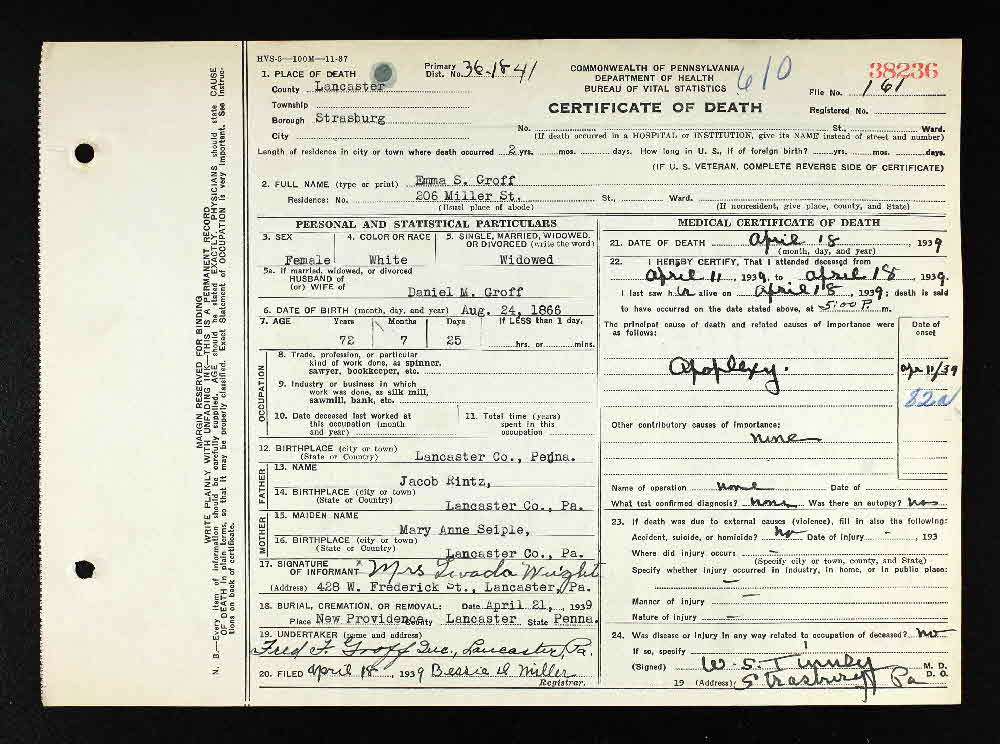 HVS-5—100M—11-37
1. PLACE OF DEATH
County Lancaster
Township
Borough Strasburg
City
Primary Dist. No. 36-18-41
COMMONWEALTH OF PENNSYLVANIA
DEPARTMENT OF HEALTH
BUREAU OF VITAL STATISTICS
CERTIFICATE OF DEATH
610
38236
File No. 161
Registered No.
No. St., Ward.
(If death occurred in a HOSPITAL or INSTITUTION, give its NAME instead of street and number)
Length of residence in city or town where death occurred 2 yrs. mos. days. How long in U. S., if of foreign birth? yrs. mos. days.
(IF U. S. VETERAN, COMPLETE REVERSE SIDE OF CERTIFICATE)
2. FULL NAME (type or print) Emma S. Groff
Residence: No. 206 Miller St. St., Ward.
(Usual place of abode) (If nonresident, give place, county, and State)
PERSONAL AND STATISTICAL PARTICULARS
3. SEX
Female
4. COLOR OR RACE
White
5. SINGLE, MARRIED, WIDOWED, OR DIVORCED (write the word)
Widowed
5a. If married, widowed, or divorced
HUSBAND of
(or) WIFE of Daniel M. Groff
6. DATE OF BIRTH (month, day, and year) Aug. 24, 1866
7. AGE Years Months Days If LESS than 1 day,
72 7 25 hrs. or mins.
OCCUPATION
8. Trade, profession, or particular
kind of work done, as spinner,
sawyer, bookkeeper, etc.
9. Industry or business in which
work was done, as silk mill,
sawmill, bank, etc.
10. Date deceased last worked at
this occupation (month
and year)
11. Total time (years)
spent in this
occupation
12. BIRTHPLACE (city or town)
(State or Country) Lancaster Co., Penna.
FATHER
13. NAME
Jacob Rintz,
14. BIRTHPLACE (city or town)
(State or Country) Lancaster Co., Pa.
MOTHER
15. MAIDEN NAME
Mary Anne Seiple,
16. BIRTHPLACE (city or town)
(State or Country) Lancaster Co., Pa.
17. SIGNATURE
OF INFORMANT x Mrs Twada Wright
(Address) 428 W. Frederick St., Lancaster, Pa.
18. BURIAL, CREMATION, OR REMOVAL: Date April 21, 1939
Place New Providence County Lancaster State Penna.
19. UNDERTAKER (name and address)
Fred F. Groff Inc., Lancaster, Pa.
20. FILED April 18, 1939 Bessie D Miller
Registrar.
MEDICAL CERTIFICATE OF DEATH
21. DATE OF DEATH April 18, 1939
(month, day, and year)
22. I HEREBY CERTIFY, That I attended deceased from
April 11, 1939, to April 18, 1939.
I last saw her alive on April 18, 1939; death is said
to have occurred on the date stated above, at 5:00 P m.
The principal cause of death and related causes of importance were
as follows:
Date of
onset
Apoplexy. Apr 11/39
82a
Other contributory causes of importance:
none
Name of operation none Date of
What test confirmed diagnosis? none Was there an autopsy? no
23. If death was due to external causes (violence), fill in also the following:
Accident, suicide, or homicide? no Date of injury - , 193
Where did injury occur? -
(Specify city or town, county, and State)
Specify whether injury occurred in industry, in home, or in public place:
—
Manner of injury —
Nature of injury —
24. Was disease or injury in any way related to occupation of deceased? no
If so, specify
(Signed) W. S. M. D.
D. O.
19 (Address) Strasburg Pa
MARGIN RESERVED FOR BINDING
WRITE PLAINLY WITH UNFADING INK—THIS IS A PERMANENT RECORD
N. B.—Every item of information should be carefully supplied. AGE should be stated EXACTLY. PHYSICIANS should state CAUSE
OF DEATH in plain terms, so that it may be properly classified. Exact Statement of OCCUPATION is very important. See instruc-
tions on back of certificate.